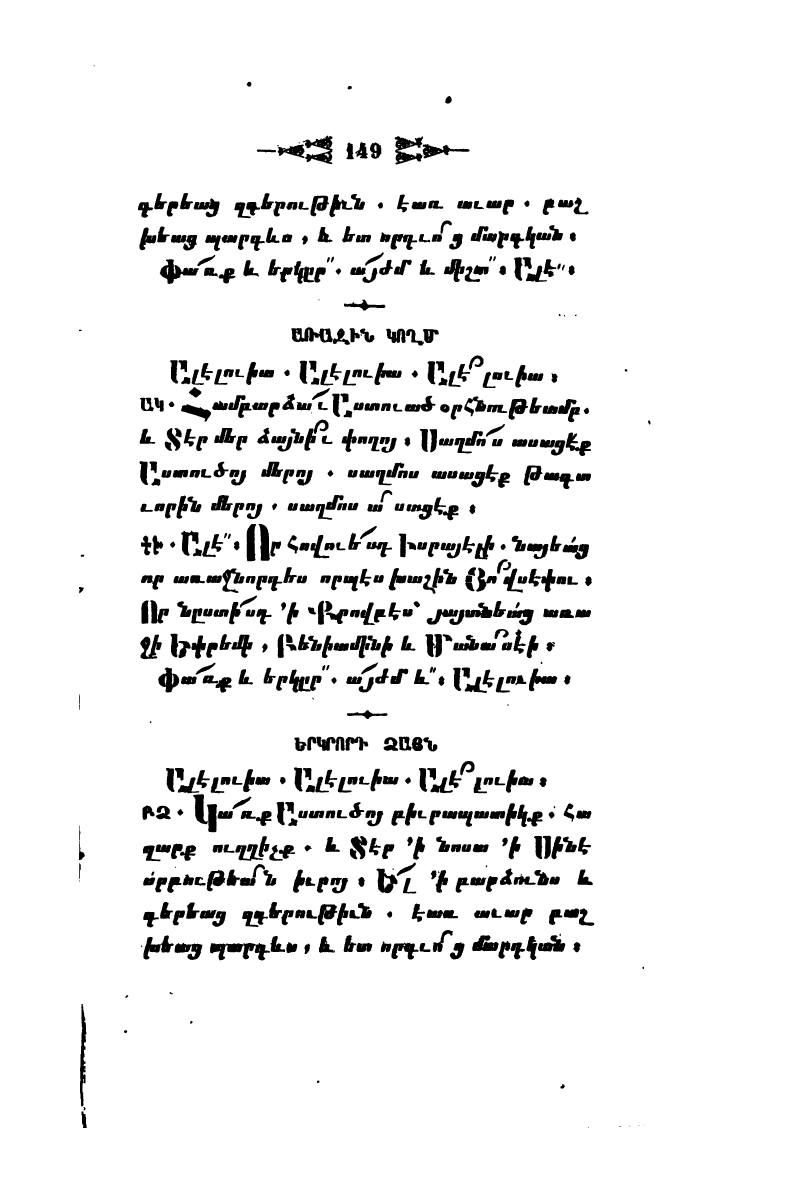 149
գերեաց զգերութիւն . էառ աւար . բաշ
խեաց պարգևս , և ետ որդւո՜ց մարդկան ։
Փա՜ռք և երկըր՛՛ . ա՜յժմ և միշտ՛՛ ։ Ալէ՛՛ ։
ԱՌԱՋԻՆ ԿՈՂՄ
Ալէլուիա . Ալէլուիա . Ալէ՜լուիա ։
ԱԿ . Համբարձա՜ւ Աստուած օրհնութեամբ .
և Տէր մեր ձայնի՜ւ փողոյ ։ Սաղմո՜ս ասացէք
Աստուծոյ մերոյ . սաղմոս ասացէք թագա
ւորին մերոյ , սաղմոս ա՜սացէք ։
ԳԻ . Ալէ՛՛ ։ Որ հովուե՜սդ Իսրայէլի . նայեա՛ց
որ առաջնորդես որպէս խաշին Յո՜վսէփու ։
Որ նըստի՜սդ ՚ի Քրովբէս՝ յայտնեա՛ց առա
ջի Եփրեմի , Բենիամինի և Մանա՜սէի ։
Փա՜ռք և երկըր՛՛ . ա՜յժմ և՛՛ ։ Ալէլուիա ։
ԵՐԿՐՈՐԴ ՁԱՅՆ
Ալէլուիա . Ալէլուիա . Ալէ՜լուիա ։
ԲՁ . Կա՜ռք Աստուծոյ բիւրապատիկք . հա
զարք ուղղիչք . և Տէր ՚ի նոսա ՚ի Սինէ
սրբութեա՜ն իւրոյ ։ Ե՜լ ՚ի բարձունս և
գերեաց զգերութիւն . էառ աւար բաշ
խեաց պարգևս , և ետ որդւո՜ց մարդկան ։